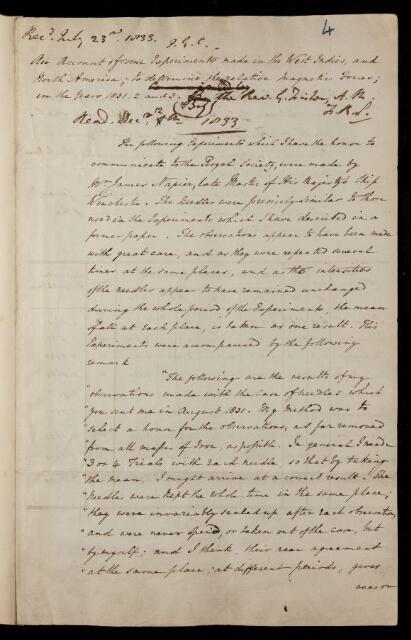 4
Rec.d July 23rd 1833. J.G.C.
An Account of some Experiments made in the West Indies, and
North America; to determine the relative Magnetic Forces;
in the Years 1831. 2 and 3. By the Rev. G. Fisher, A.M.
F.R.S.
Read. Dec.r 12th 1833
The following Experiments which I have the honor to
communicate to the Royal Society, were made by
Mr James Napier, late Master of His Majesty's Ship
Winchester. The needles were precisely similar to those
used in the Experiments which I have described in a
former paper. The observations appear to have been made
with great care, and as they were repeated several
times at the same places, and as the intensities
of the needles appear to have remained unchanged
during the whole period of the Experiments, the mean
of all at each place, is taken as one result. The
Experiments were accompanied by the following
remark
"The following are the results of my
"observations made with the case of needles which
"you sent me in August 1831. My method was to
"select a house for the observations, as far removed
"from all masses of Iron, as possible. In general I made
"3 or 4 Trials with each needle, so that by taking
"the mean, I might arrive at a correct result. The
"needles were kept the whole time in the same place;
"they were invariably sealed up after each observation,
"and were never opened, or taken out of the case, but
"by myself; and I think, their near agreement
"at the same place, at different periods, gives
reason